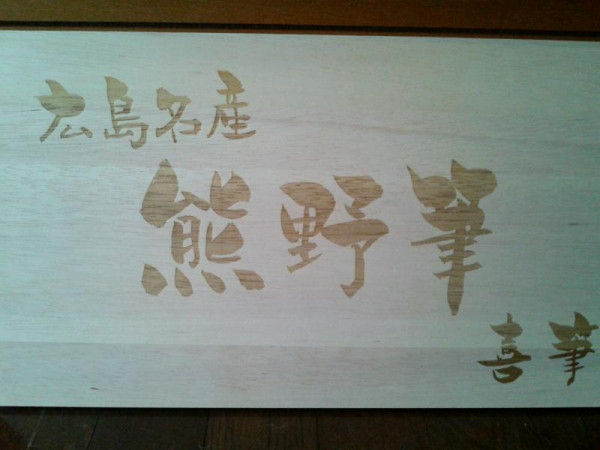 広島名産
熊野筆
喜筆